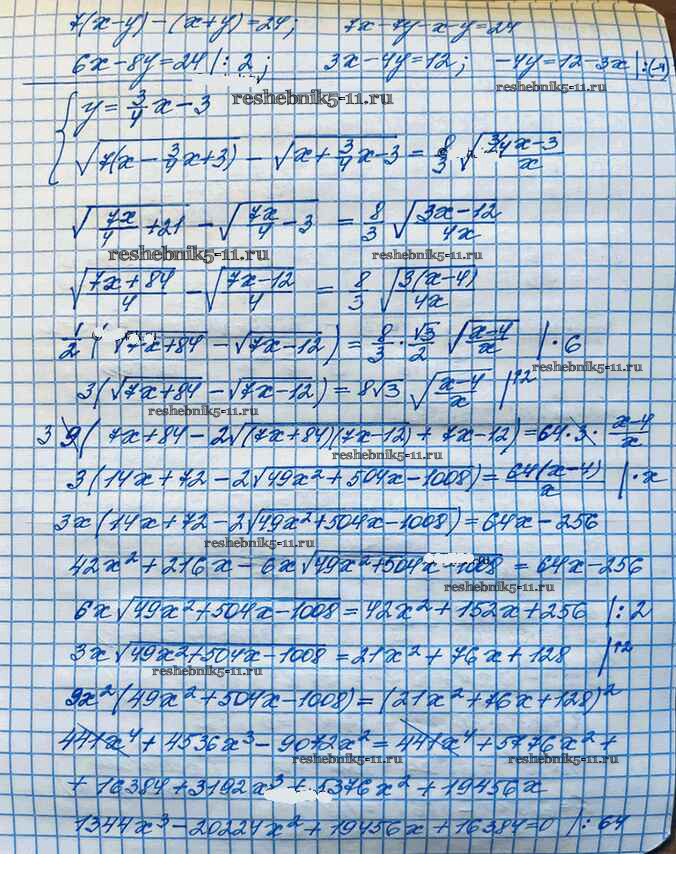 7(x-y)-(x+y)=24; 7x-7y-x-y=24
6x-8y=24|:2; 3x-4y=12; -4y=12-3x|:(-4)
{ y=3/4 x-3
reshebnik5-11.ru
√(7(x-3/4x+3)) - √(x+3/4x-3) = 8/3 √((3/4x-3)/x)
√(7x/4+21) - √(7x/4-3) = 8/3 √((3x-12)/4x)
reshebnik5-11.ru reshebnik5-11.ru
√((7x+84)/4) - √((7x-12)/4) = 8/3 √(3(x-4)/4x)
1/2(√(7x+84) - √(7x-12)) = 8/3·√3/2 √((x-4)/x) |·6
reshebnik5-11.ru
3(√(7x+84) - √(7x-12)) = 8√3 √((x-4)/x) |↑2
reshebnik5-11.ru
3 9(7x+84-2√((7x+84)(7x-12))+7x-12)=64·3·(x-4)/x
reshebnik5-11.ru
3(14x+72-2√(49x²+504x-1008))=64(x-4)/x |·x
3x(14x+72-2√(49x²+504x-1008))=64x-256
reshebnik5-11.ru
42x²+216x-6x√(49x²+504x-1008)=64x-256
reshebnik5-11.ru
6x√(49x²+504x-1008)=42x²+152x+256 |:2
3x√(49x²+504x-1008)=21x²+76x+128 |↑2
reshebnik5-11.ru
9x²(49x²+504x-1008)=(21x²+76x+128)²
reshebnik5-11.ru
441x⁴+4536x³-9072x²=441x⁴+5776x²+
reshebnik5-11.ru reshebnik5-11.ru
+16384+3192x³+5376x²+19456x
1344x³-20224x²+19456x+16384=0 |:64